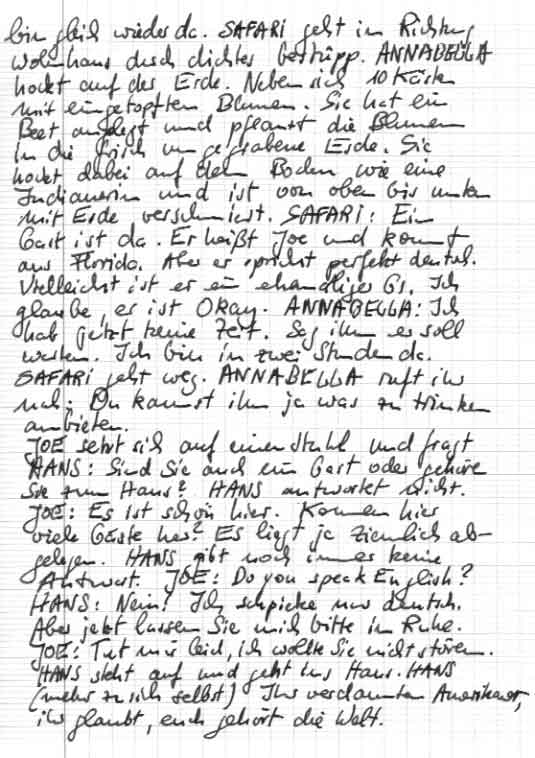 bin gleich wieder da. SAFARI geht in Richtung
Wohnhaus durch dichtes Gestrüpp. ANNABELLA
hockt auf der Erde. Neben sich 10 Kästen
mit eingetopften Blumen. Sie hat ein
Beet angelegt und pflanzt die Blumen
in die frisch umgegrabene Erde. Sie
hockt dabei auf dem Boden wie eine
Indianerin und ist von oben bis unten
mit Erde verschmiert. SAFARI: Ein
Gast ist da. Er heißt Joe und kommt
aus Florida. Aber er spricht perfekt deutsch.
Vielleicht ist er ein ehemaliger GI. Ich
glaube, er ist Okay. ANNABELLA: Ich
hab jetzt keine Zeit. Sag ihm er soll
warten. Ich bin in zwei Stunden da.
SAFARI geht weg. ANNABELLA ruft ihr
nach: Du kannst ihm ja was zu trinken
anbieten.
JOE setzt sich auf einen Stuhl und fragt
HANS: Sind Sie auch ein Gast oder gehören
Sie zum Haus? HANS antwortet nicht.
JOE: Es ist schön hier. Kommen hier
viele Gäste her? Es liegt ja ziemlich ab-
gelegen. HANS gibt noch immer keine
Antwort. JOE: Do you speak English?
HANS: Nein! Ich schpicke nur deutsch.
Aber jetzt lassen Sie mich bitte in Ruhe.
JOE: Tut mir leid, ich wollte Sie nicht stören.
HANS steht auf und geht ins Haus. HANS
(mehr zu sich selbst) Ihr verdammten Amerikaner,
ihr glaubt, euch gehört die Welt.